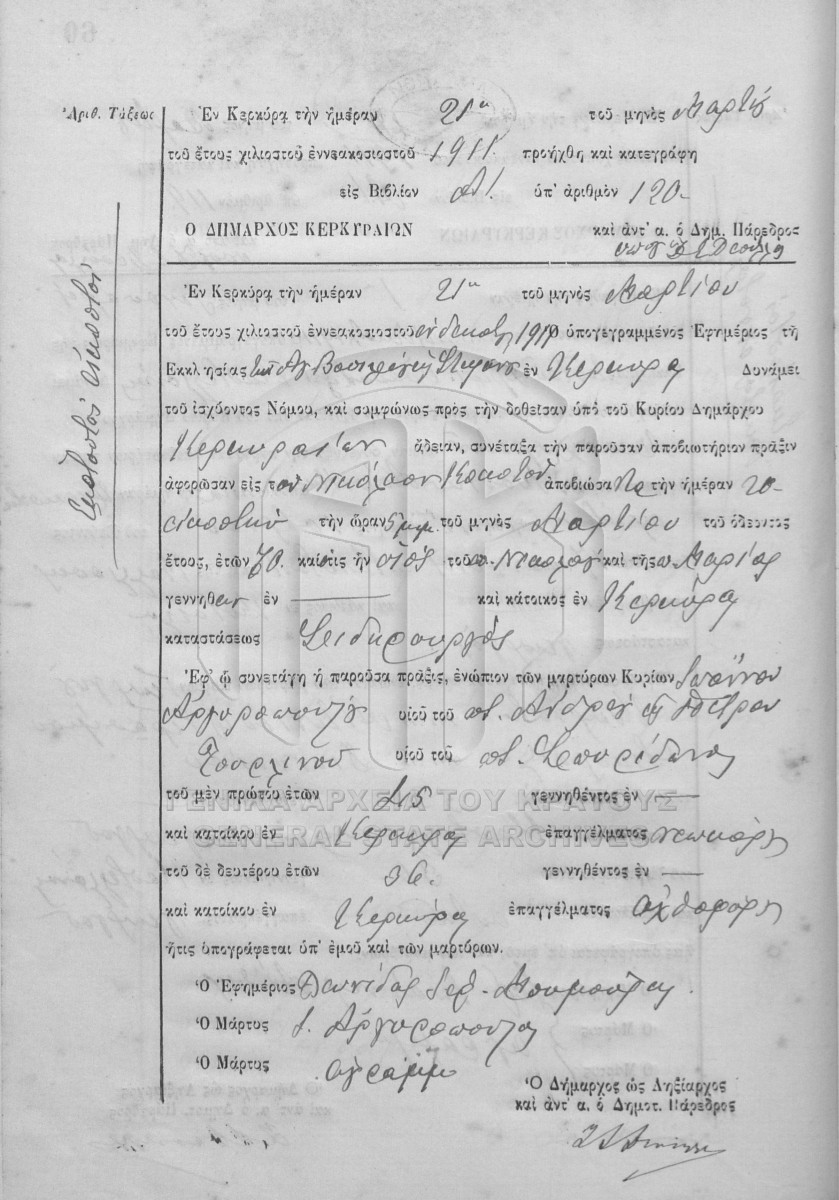 Ἀριθ. Τάξεως
Ἐν Κερκύρᾳ τὴν ἡμέραν 21η τοῦ μηνὸς Μαρτίου
τοῦ ἔτους χιλιοστοῦ ἐννεακοσιοστοῦ 1911 προήχθη καὶ κατεγράφη
εἰς Βιβλίον Α1. ὑπ' ἀριθμὸν 120-
Ο ΔΗΜΑΡΧΟΣ ΚΕΡΚΥΡΑΙΩΝ καὶ ἀντ' α. ὁ Δημ. Πάρεδρος
Ἐν Κερκύρᾳ τὴν ἡμέραν 21η τοῦ μηνὸς Μαρτίου
τοῦ ἔτους χιλιοστοῦ ἐννεακοσιοστοῦ ἑνδεκάτου 1911 Ὁ ὑπογεγραμμένος Ἐφημέριος τῆς
Ἐκκλησίας τῶν Ἁγ Βασιλείου Στεφάνου ἐν Κερκύρᾳ Δυνάμει
τοῦ ἰσχύοντος Νόμου, καὶ συμφώνως πρὸς τὴν δοθεῖσαν ὑπὸ τοῦ Κυρίου Δημάρχου
Κερκυραίων ἄδειαν, συνέταξα τὴν παροῦσαν ἀποβιωτήριον πρᾶξιν
ἀφορῶσαν εἰς τὸν Νικόλαον ἀποβιώσαντα τὴν ἡμέραν 20-
εἰκοστὴν τὴν ὥραν 5 μ.μ. τοῦ μηνὸς Μαρτίου τοῦ ὁδεύοντος
ἔτους, ἐτῶν 70. καὶ ὅστις ἦν υἱὸς τοῦ π. Νικολάου καὶ τῆς π. Μαρίας
γεννηθεὶς ἐν — καὶ κάτοικος ἐν Κερκύρᾳ
καταστάσεως Σιδηρουργός
Ἐφ' ᾧ συνετάγη ἡ παροῦσα πρᾶξις, ἐνώπιον τῶν μαρτύρων Κυρίων Ἰωάννου
Ἀργυροπούλου υἱοῦ τοῦ π. Ἀνδρέου καὶ Πέτρου
Τουρλινοῦ υἱοῦ τοῦ π. Σπυρίδωνος
τοῦ μὲν πρώτου ἐτῶν 45 γεννηθέντος ἐν —
καὶ κατοίκου ἐν Κερκύρᾳ ἐπαγγέλματος
τοῦ δὲ δευτέρου ἐτῶν 36. γεννηθέντος ἐν —
καὶ κατοίκου ἐν Κερκύρᾳ ἐπαγγέλματος ἀχθοφόρου
ἥτις ὑπογράφεται ὑπ' ἐμοῦ καὶ τῶν μαρτύρων.
Ὁ Ἐφημέριος Λεωνίδας Ἱερ.
Ὁ Μάρτυς Ι. Ἀργυρόπουλος
Ὁ Μάρτυς ἀγράμμ
Ὁ Δήμαρχος ὡς Ληξίαρχος
καὶ ἀντ' α. ὁ Δημοτ. Πάρεδρος
ΓΕΝΙΚΑ ΑΡΧΕΙΑ ΤΟΥ ΚΡΑΤΟΥΣ
GENERAL STATE ARCHIVES